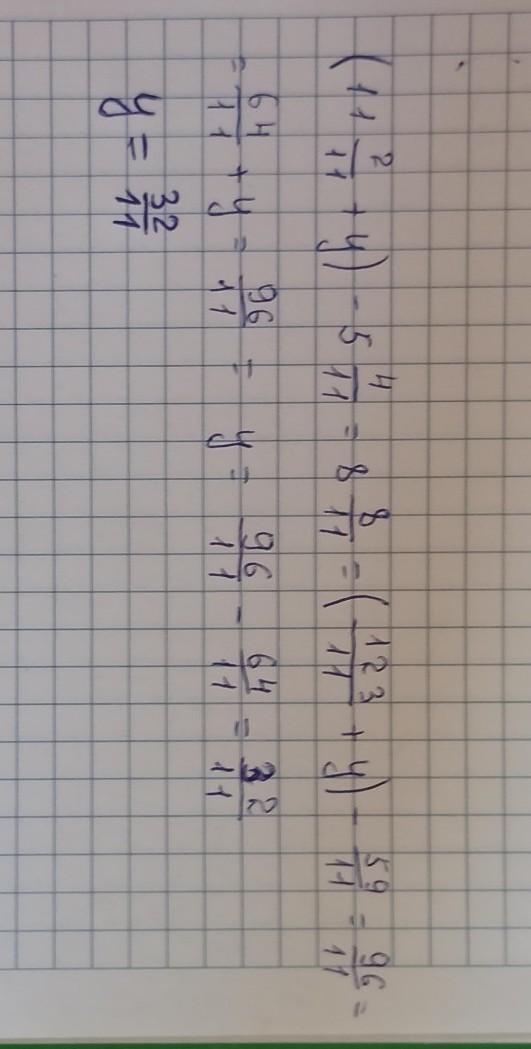 (11 2/11 + y) - 5 4/11 = 8 8/11 = (123/11 + y) - 59/11 = 96/11 =
= 64/11 + y = 96/11 = y = 96/11 - 64/11 = 32/11
y = 32/11